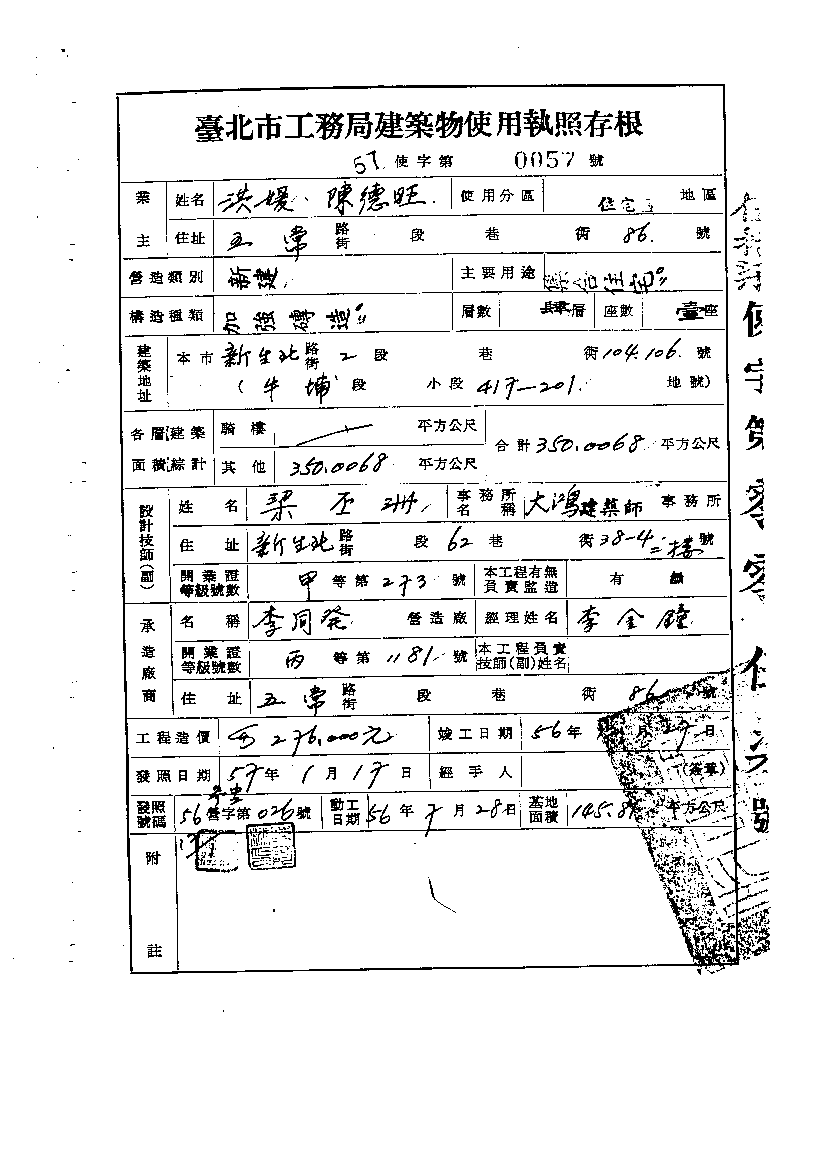 臺北市工務局建築物使用執照存根
57 使字第 0057 號
業主 姓名 洪媛、陳德旺 使用分區 住宅 地區
住址 五常 路街 段 巷 衖 86 號
營造類別 新建 主要用途 集合住宅
構造種類 加強磚造 層數 肆層 座數 壹座
建築地址 本市 新生北 路街 2 段 巷 衖 104.106 號
(牛埔 段 小段 地號)
各層建築面積綜計 騎樓 平方公尺 合計 350.0068 平方公尺
其他 350.0068 平方公尺
設計技師(副) 姓名 梁丕 事務所名稱 大鴻建築師事務所
住址 新生北 路街 段 62 巷 衖 38-4 二樓 號
開業證等級號數 甲 等第 273 號 本工程有無負責監造 有 無
承造廠商 名稱 李同發 營造廠 經理姓名 李金鐘
開業證等級號數 丙 等第 1181 號 本工程負責技師(副)姓名
住址 五常 路街 段 巷 衖 86 號
工程造價 276,000元 竣工日期 56年 月 日
發照日期 57年1月17日 經手人 (簽章)
發照號碼 56 營字第 026 號 動工日期 56年7月28日 基地面積 145.8 平方公尺
附註
使字第零零伍柒號